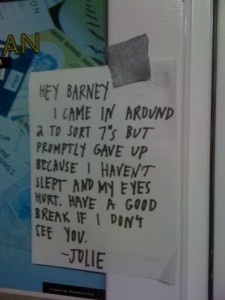 AN
HEY BARNEY
I CAME IN AROUND
2 TO SORT 7"S BUT
PROMPTLY GAVE UP
BECAUSE I HAVEN'T
SLEPT AND MY EYES
HURT. HAVE A GOOD
BREAK IF I DON'T
SEE YOU.
-JOLIE